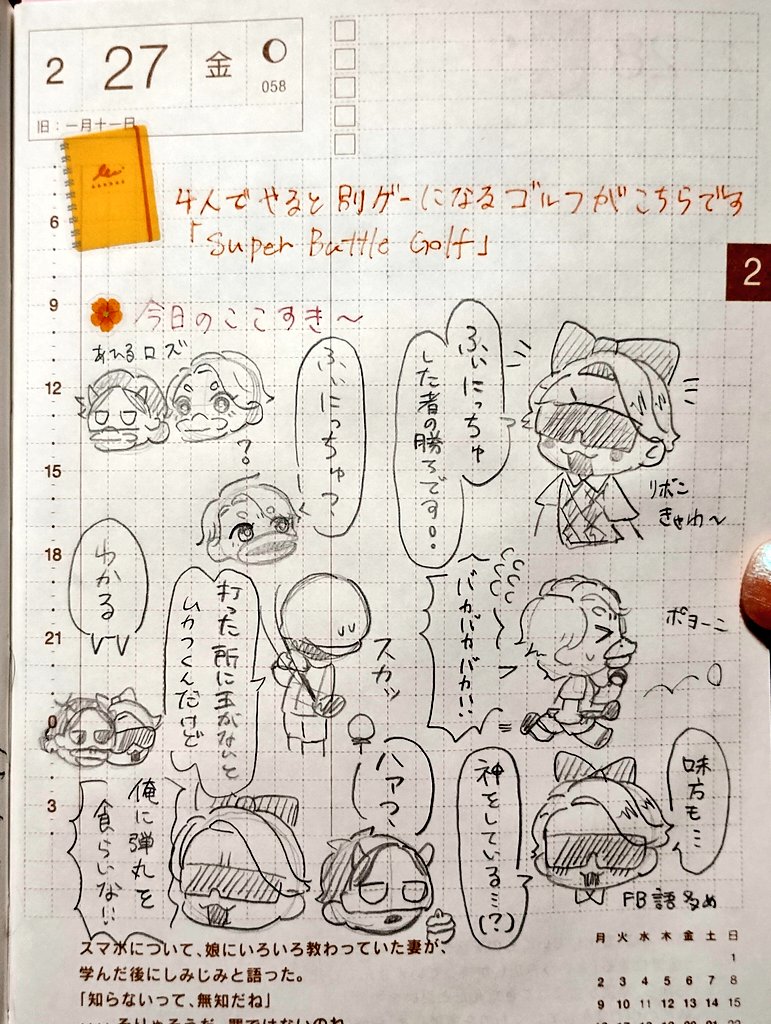 2 27 金
058
旧:一月十一日
4人でやると別ゲーになるゴルフがこちらです
「Super Battle Golf」
2
6
9
12
15
18
21
0
3
今日のここすき〜
あひるロズ
ふぃにっちゅ
した者の勝ちです。
ふぃにっちゅっ
?
リボン
きゃわ〜
わかる
バカバカバカ!!
ポヨーン
打った所に玉がないと
ムカつくんだけど
スカッ
ハァっ
神をしている…(?)
味方も…
FB語多め
俺に弾丸を
食らいな!!
スマホについて、娘にいろいろ教わっていた妻が、
学んだ後にしみじみと語った。
「知らないって、無知だね」
月 火 水 木 金 土 日
1
2 3 4 5 6 7 8
9 10 11 12 13 14 15